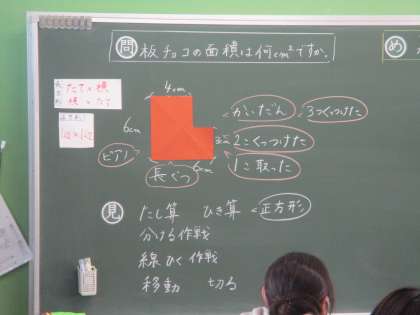 問 板チョコの面積は何cm²ですか。
め
長方形 たて×横
横×たて
正方形 1辺×1辺
4cm
6cm
3cm
6cm
かいだん
3つくっつけた
2こくっつけた
1こ取った
ピアノ
長ぐつ
見 たし算 ひき算 正方形
分ける作戦
線ひく作戦
移動 切る